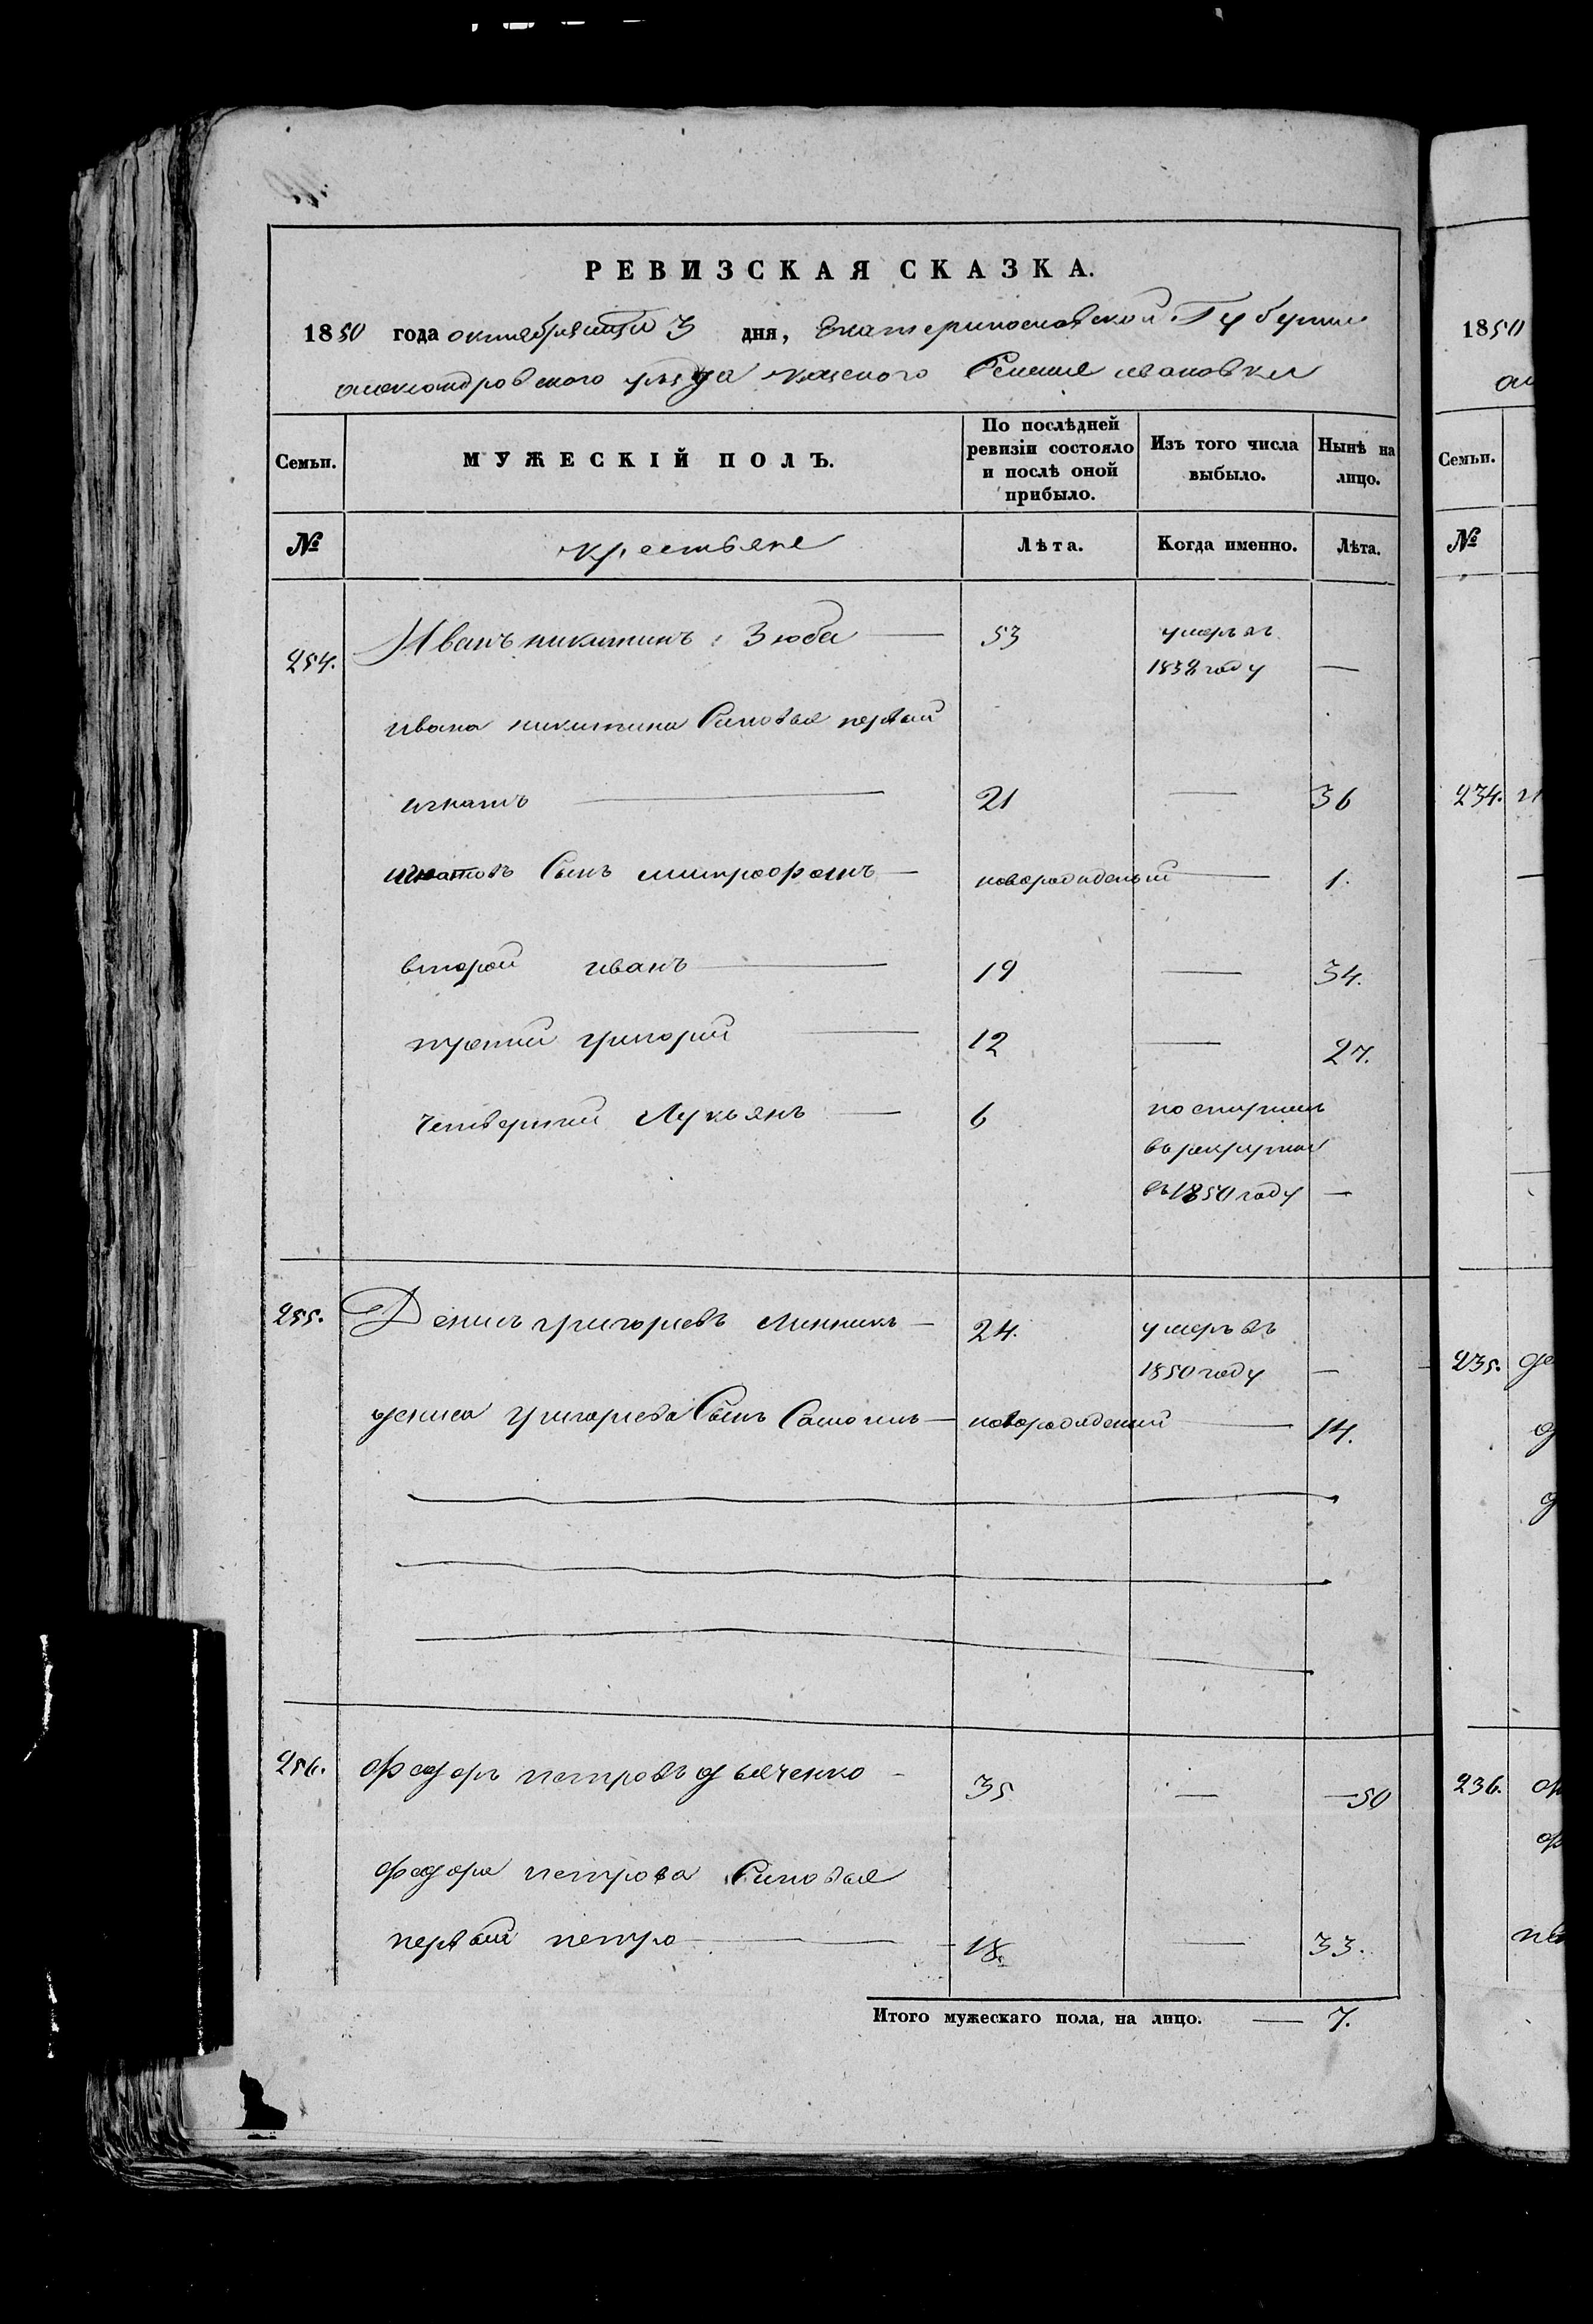 РЕВИЗСКАЯ СКАЗКА.
1850 года октября 3 дня, Екатеринославской Губернии
александровского уезда казеного Селения ивановки
Семьи. МУЖЕСКІЙ ПОЛЪ. По послѣдней ревизіи состояло и послѣ оной прибыло. Изъ того числа выбыло. Нынѣ на лицо.
№ крестьяне Лѣта. Когда именно. Лѣта.
254. Иванъ никитинъ Зюба — 53 умеръ въ
1838 году —
ивана никитина Синовья первый
игнатъ — 21 — 36
игнатовъ Сынъ митрофанъ — новорожденый — 1.
второй иванъ — 19 — 34.
третий григорий — 12 — 27.
четвертий Лукьянъ — 6 поступилъ
въ рекруты
въ 1850 году —
255. Денисъ григориевъ Линникъ — 24. умеръ въ
1850 году —
дениса григориева Сынъ Самоилъ — новорожденый — 14.
256. федоръ петровъ дьяченко — 35 — 50
федора петрова Синовья
первый петро — 18. — 33.
Итого мужескаго пола, на лицо. — 7.
1850
Семьи.
№
234.
235.
236.